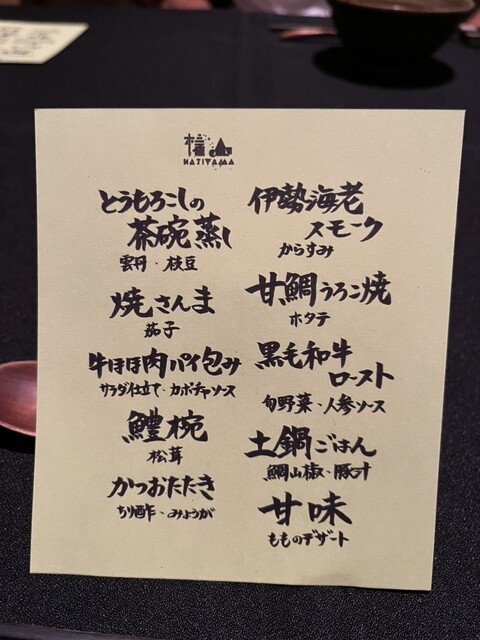 HATIYAMA
とうもろこしの
茶碗蒸し
雲丹・枝豆
焼さんま
茄子
牛ほほ肉パイ包み
サラダ仕立て・カボチャソース
鱧椀
松茸
かつおたたき
ちり酢・みょうが
伊勢海老
スモーク
からすみ
甘鯛うろこ焼
ホタテ
黒毛和牛
ロースト
旬野菜・人参ソース
土鍋ごはん
鯛山椒・豚汁
甘味
もものデザート